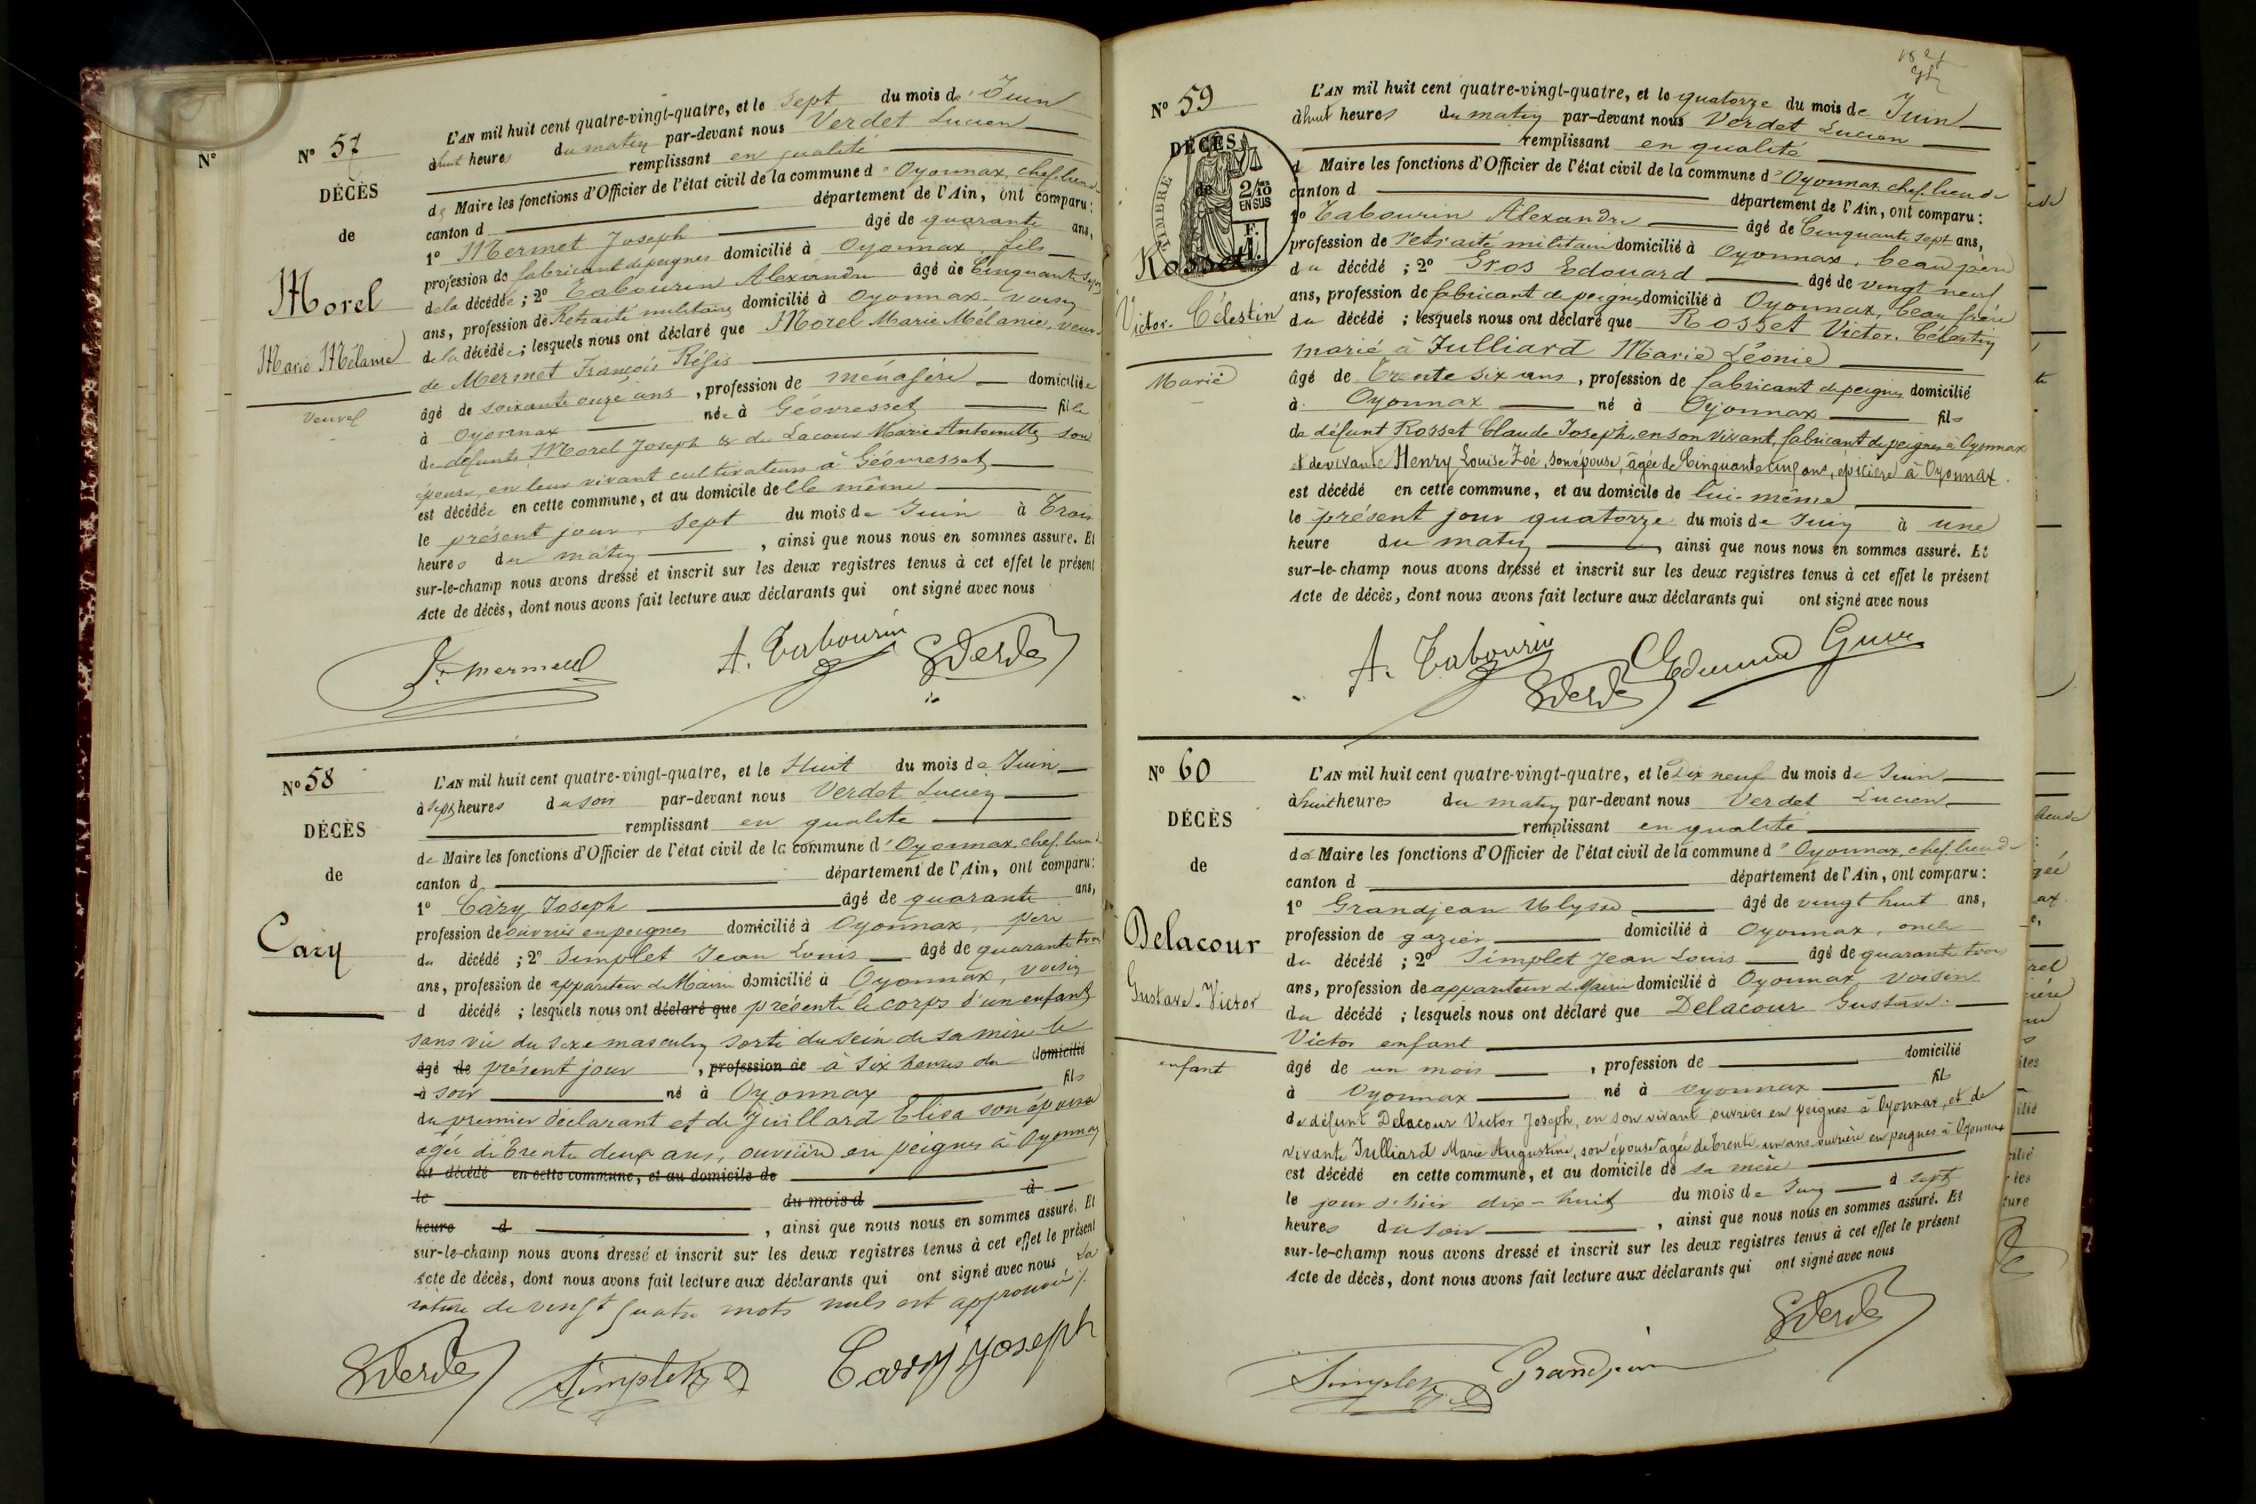 N°
N° 57
DÉCÈS
de
Morel
Marie Mélanie
veuve
L'AN mil huit cent quatre-vingt-quatre, et le sept du mois de Juin
à huit heures du matin par-devant nous Verdet Lucien
remplissant en qualité
de Maire les fonctions d'Officier de l'état civil de la commune d'Oyonnax, chef lieu de
canton d département de l'Ain, ont comparu:
1° Mermet Joseph âgé de quarante ans,
profession de fabricant de peignes domicilié à Oyonnax, fils
de la décédée; 2° Tabourin Alexandre âgé de Cinquante sept
ans, profession de Retraité militaire domicilié à Oyonnax. voisin
de la décédée; lesquels nous ont déclaré que Morel Marie Mélanie, veuve
de Mermet François Régis
âgé de soixante onze ans, profession de ménagère domiciliée
à Oyonnax née à Géovresset fille
de défunts Morel Joseph & de Lacour Marie Antoinette son
épouse, en leur vivant cultivateurs à Géovresset
est décédée en cette commune, et au domicile de elle même
le présent jour sept du mois de Juin à Trois
heures du matin, ainsi que nous nous en sommes assuré. Et
sur-le-champ nous avons dressé et inscrit sur les deux registres tenus à cet effet le présent
Acte de décès, dont nous avons fait lecture aux déclarants qui ont signé avec nous
J. Mermet A. Tabourin Verdet
N° 58
DÉCÈS
de
Cary
L'AN mil huit cent quatre-vingt-quatre, et le Huit du mois de Juin
à sept heures du soir par-devant nous Verdet Lucien
remplissant en qualité
de Maire les fonctions d'Officier de l'état civil de la commune d'Oyonnax, chef lieu de
canton d département de l'Ain, ont comparu:
1° Cary Joseph âgé de quarante ans,
profession de ouvrier en peignes domicilié à Oyonnax, père
du décédé; 2° Simplet Jean Louis âgé de quarante trois
ans, profession de appariteur de Mairie domicilié à Oyonnax, voisin
d décédé; lesquels nous ont déclaré que présenté le corps d'un enfant
sans vie du sexe masculin sorti du sein de sa mère le
âgé de présent jour, profession de à six heures du domicilié
à soir né à Oyonnax fils
du premier déclarant et de Juillard Elisa son épouse
agée de trente deux ans, ouvrière en peignes à Oyonnax
est décédé en cette commune, et au domicile de
le du mois d à
heure d, ainsi que nous nous en sommes assuré. Et
sur-le-champ nous avons dressé et inscrit sur les deux registres tenus à cet effet le présent
Acte de décès, dont nous avons fait lecture aux déclarants qui ont signé avec nous La
rature de vingt quatre mots nuls est approuvée
Verdet Simplet Cary Joseph
N° 59
DÉCÈS
de
TIMBRE
2/10 EN SUS
F.
Rosset
Victor. Célestin
Marié
L'AN mil huit cent quatre-vingt-quatre, et le quatorze du mois de Juin
à huit heures du matin par-devant nous Verdet Lucien
remplissant en qualité
d Maire les fonctions d'Officier de l'état civil de la commune d'Oyonnax chef lieu de
canton d département de l'Ain, ont comparu:
1° Tabourin Alexandre âgé de Cinquante sept ans,
profession de retraité militaire domicilié à Oyonnax, beau père
du décédé; 2° Gros Edouard âgé de vingt neuf
ans, profession de fabricant de peignes domicilié à Oyonnax, beau frère
du décédé; lesquels nous ont déclaré que Rosset Victor. Célestin
marié à Julliard Marie Léonie
âgé de Trente six ans, profession de fabricant de peignes domicilié
à Oyonnax né à Oyonnax fils
de défunt Rosset Claude Joseph, en son vivant, fabricant de peignes à Oyonnax
et de vivante Henry Louise Zoé, son épouse, âgée de Cinquante cinq ans, épicière à Oyonnax.
est décédé en cette commune, et au domicile de lui-même
le présent jour quatorze du mois de Juin à une
heure du matin, ainsi que nous nous en sommes assuré. Et
sur-le-champ nous avons dressé et inscrit sur les deux registres tenus à cet effet le présent
Acte de décès, dont nous avons fait lecture aux déclarants qui ont signé avec nous
A. Tabourin Verdet Edouard Gros
N° 60
DÉCÈS
de
Delacour
Gustave-Victor
enfant
L'AN mil huit cent quatre-vingt-quatre, et le Dix neuf du mois de Juin
à huit heures du matin par-devant nous Verdet Lucien
remplissant en qualité
de Maire les fonctions d'Officier de l'état civil de la commune d'Oyonnax, chef lieu de
canton d département de l'Ain, ont comparu:
1° Grandjean Ulysse âgé de vingt huit ans,
profession de gazier domicilié à Oyonnax, oncle
du décédé; 2° Simplet Jean Louis âgé de quarante trois
ans, profession de appariteur de Mairie domicilié à Oyonnax voisin
du décédé; lesquels nous ont déclaré que Delacour Gustave
Victor enfant
âgé de un mois, profession de domicilié
à Oyonnax né à Oyonnax fils
de défunt Delacour Victor Joseph, en son vivant ouvrier en peignes à Oyonnax, et de
vivante Julliard Marie Augustine, son épouse âgée de trente un ans ouvrière en peignes à Oyonnax
est décédé en cette commune, et au domicile de sa mère
le jour d'hier dix-huit du mois de Juin à sept
heures du soir, ainsi que nous nous en sommes assuré. Et
sur-le-champ nous avons dressé et inscrit sur les deux registres tenus à cet effet le présent
Acte de décès, dont nous avons fait lecture aux déclarants qui ont signé avec nous
Simplet Grandjean Verdet